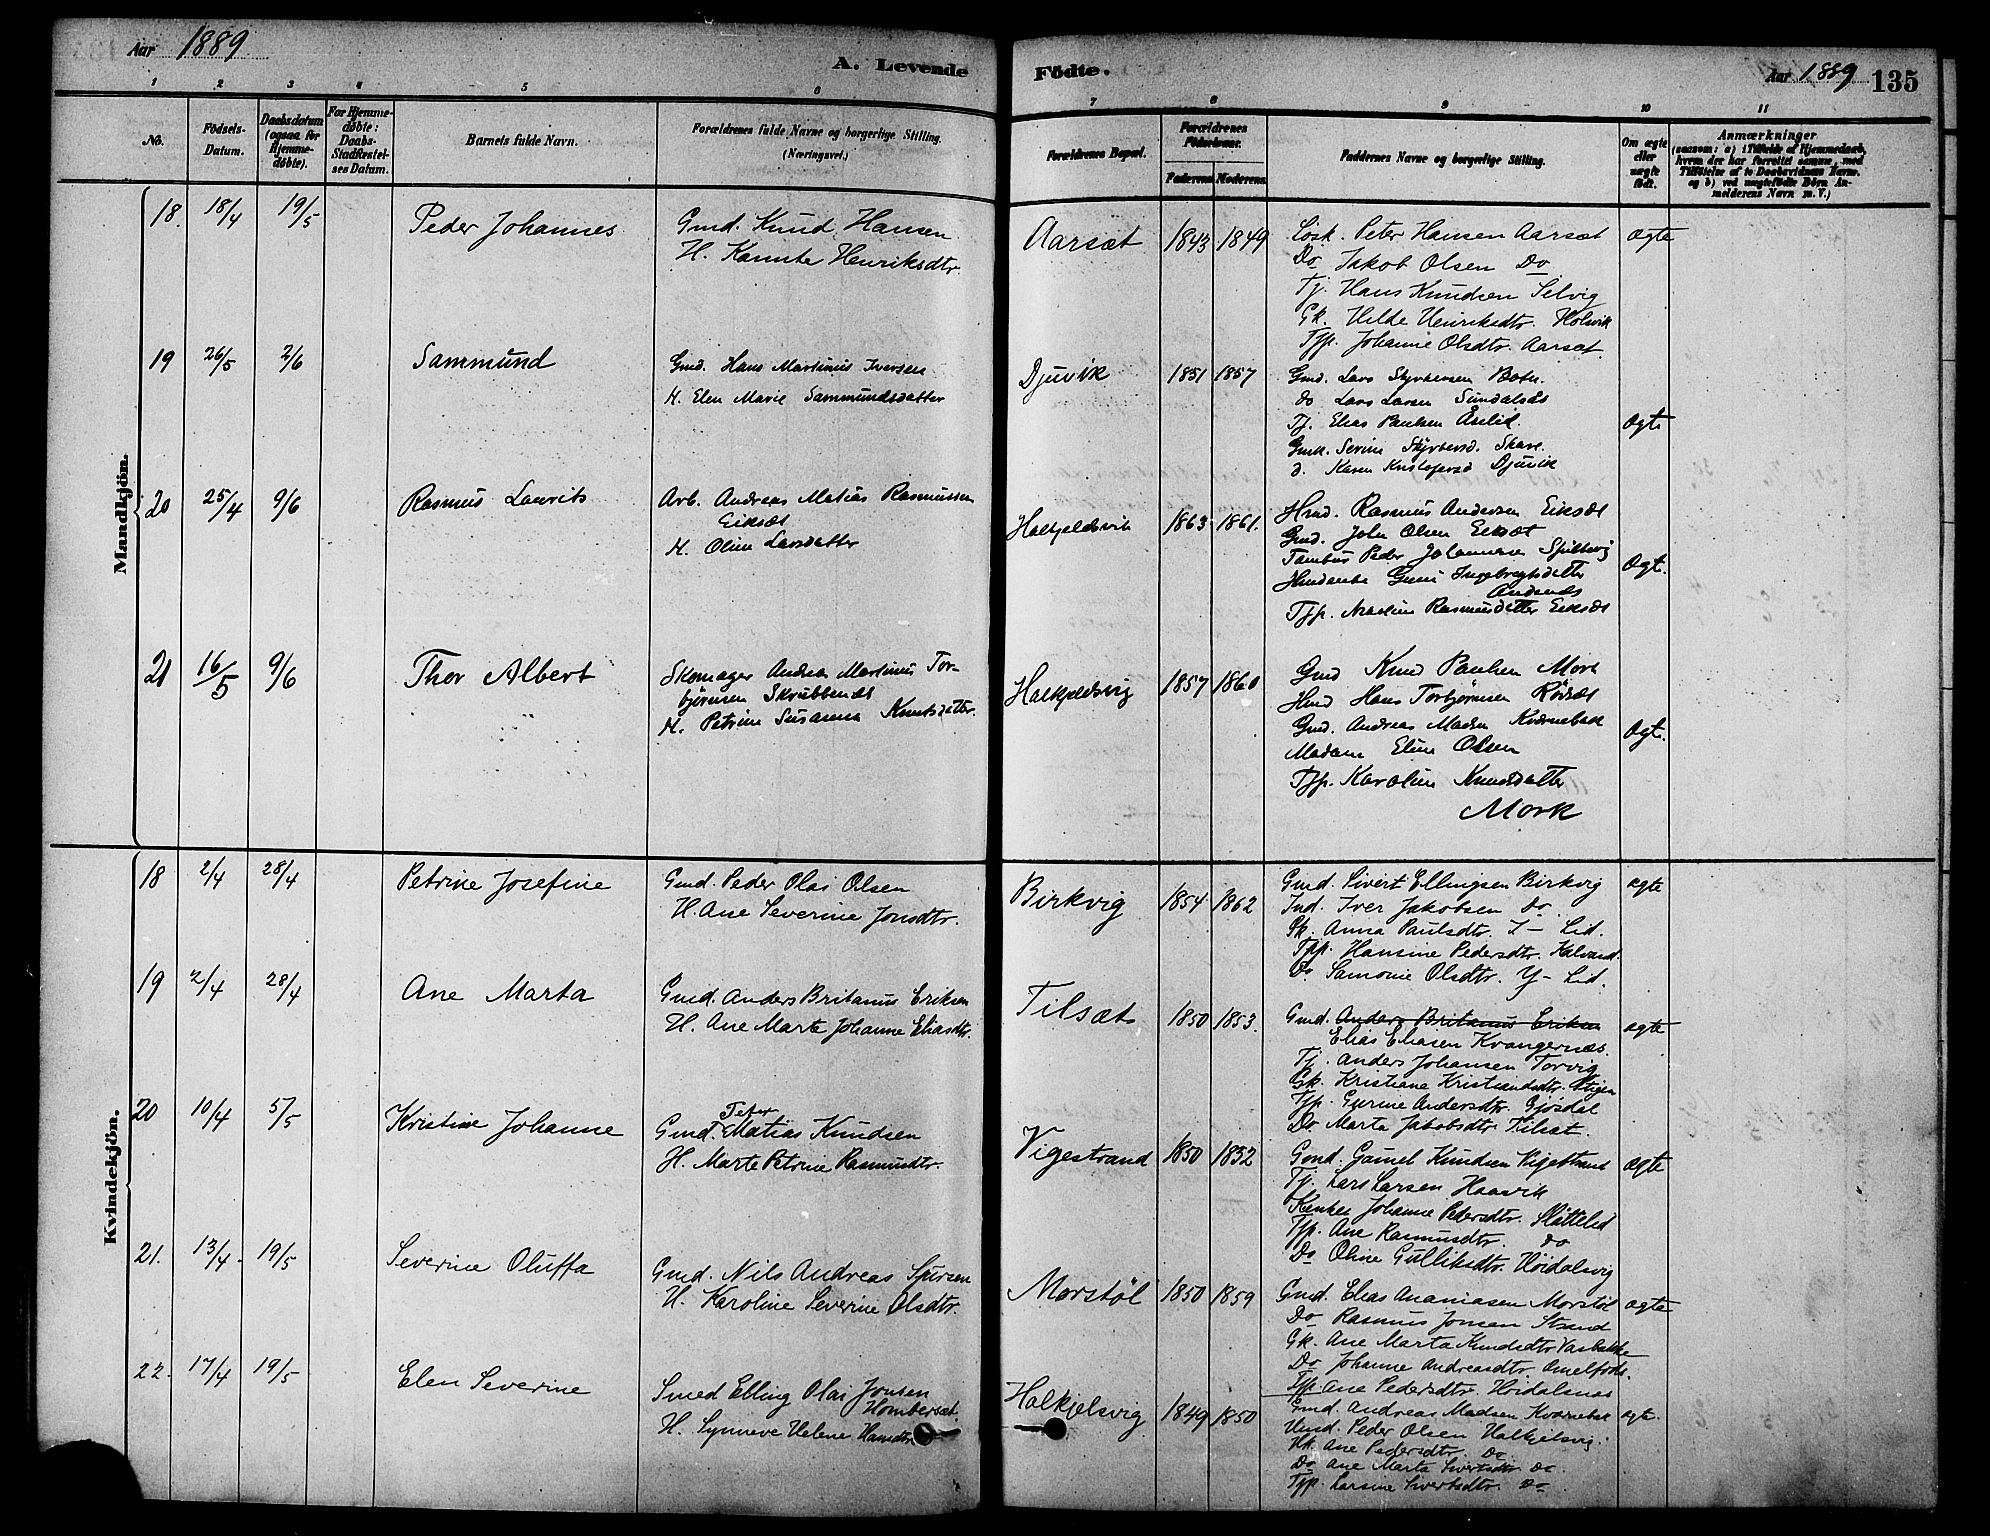 Aar 1889
A. Levende
1 2 3 4 5 6
No.
Födsels-Datum.
Daabsdatum (ogsaa for Hjemme-døbte).
For Hjemme-døbte: Daabs-Stadfæstel-ses Datum.
Barnets fulde Navn.
Forældrenes fulde Navne og borgerlige Stilling.
(Næringsvei.)
Mandkjön.
18. 18/4 19/5 Peder Johannes Gmd. Knud Hansen
H. Kannute Henriksdtr.
19 26/5 2/6 Sammund Gmd. Hans Martinus Iversen
H. Elen Marie Sammundsdatter
20 25/4 9/6 Rasmus Laurits Arb. Andreas Matias Rasmussen
Eiksæt
H. Oline Larsdatter
21 16/5 9/6 Thor Albert Skomager Andreas Martinus Tor-
bjørnsen Skrubbenæs
H. Petrine Susanna Knutsdatter.
Kvindekjön.
18 2/4 28/4 Petrine Josefine Gmd. Peder Olai Olsen
H. Ane Severine Jonsdtr.
19 2/4 28/4 Ane Marta Gmd. Anders Britanus Eriksen
H. Ane Marta Johanne Eliasdtr.
20 10/4 5/5 Kristine Johanne Gmd. Peter Matias Knudsen
H. Marte Petrine Rasmusdtr.
21. 13/4 19/5 Severine Oluffa Gmd. Nils Andreas
H. Karoline Severine Olsdtr.
22. 17/4 19/5 Elen Severine Smed Elling Olai Jonsen
Hombersæt.
H. Synneve Helene Hansdtr.
Födte.
Aar 1889 135
7 8 9 10 11
Forældrenes Bopæl.
Forældrenes Födselsaar.
Faderens Moderens
Faddernes Navne og borgerlige Stilling.
Om ægte eller uægte født.
Anmærkninger
(saasom: a) i Tilfælde af Hjemmedaab, hvem der har forrettet samme, med Tilföielse af to Daabsvidners Navne, og b) ved uægtefödte Börn An-melderens Navn m. V.)
Aarsæt 1843 1849 Løsk. Peter Hansen Aarsæt ægte
Do Jakob Olsen Do
Tj. Hans Knudsen Selvig
Gk. Hilde Henriksdtr. Holsvik
Tjp. Johanne Olsdtr. Aarsæt.
Djuvik 1851 1857 Gmd. Lars Styrkersen Botn.
do Lars Larsen Sundalsås
Tj. Elias Paulsen Åselid. Ægte
Gmk. Serine Styrkersd. Skare.
d. Karen Kristofersd Djuvik
Halkjeldsvik 1863 1861. Hmd. Rasmus Andersen Eiksæt
Gmd. John Olsen Eiksæt
Tambur Peder Johannesen Ægt.
Ingebregtsdatter
Tjp. Rasmusdatter Eiksæt
Halkjeldsvig 1857 1860 Gmd Knud Paulsen Mork
Hmd Hans Torbjørnsen Rødsæt
Gmd. Andreas Madsen Kvernebak Ægt.
Madam Eline Olsen
Tjp. Karoline Knudsdatter
Mork
Birkvig 1854 1862 Gmd. Sivert Ellingsen Birkvig ægte
Ind. Iver Jakobsen Do
Gk. Anna Paulsdtr. I- Lid.
Tjp. Hansine Pedersdtr. Kalvand.
Do Samonie Olsdtr. Y- Lid.
Tilsæt 1850 1853. Gmd. Anders Britanus Eriksen ægte
Elias Eliasen Kvangernæs.
Tj. Anders Johansen Torvig
Gk. Kristiane Kristiansdtr. Stigen
Tjp. Gurine Andersdtr. Gjösdal
Do Marta Jakobsdtr. Tilsæt.
Vigestrand 1850 1852 Gmd. Gamel Knudsen Vigestrand ægte
Tj. Lars Larsen Haavik
Johanne Pedersdtr. Slåttelid
Tjp. Ane Rasmusdtr. do
Do Oline Gulliksdtr. Höidalsvig
Morstöl 1850 1859 Gmd. Elias Ananiasen Morstöl ægte
Do Rasmus Jonsen Strand
Gk. Ane Marta Knudsdtr Vasbakke
Do Johanne Andreasdtr.
Tjp. Ane Pedersdtr. Höidalsnæs
Halkjelsvig 1849 1850 Gmd. Andreas Madsen Kvernebak ægte.
Hmd. Peder Olsen Halkjelsvig.
Hk. Ane Pedersdtr. Do
Do Ane Marta Sivertsdtr. Do.
Tjp. Larsine Sivertsdtr. Do